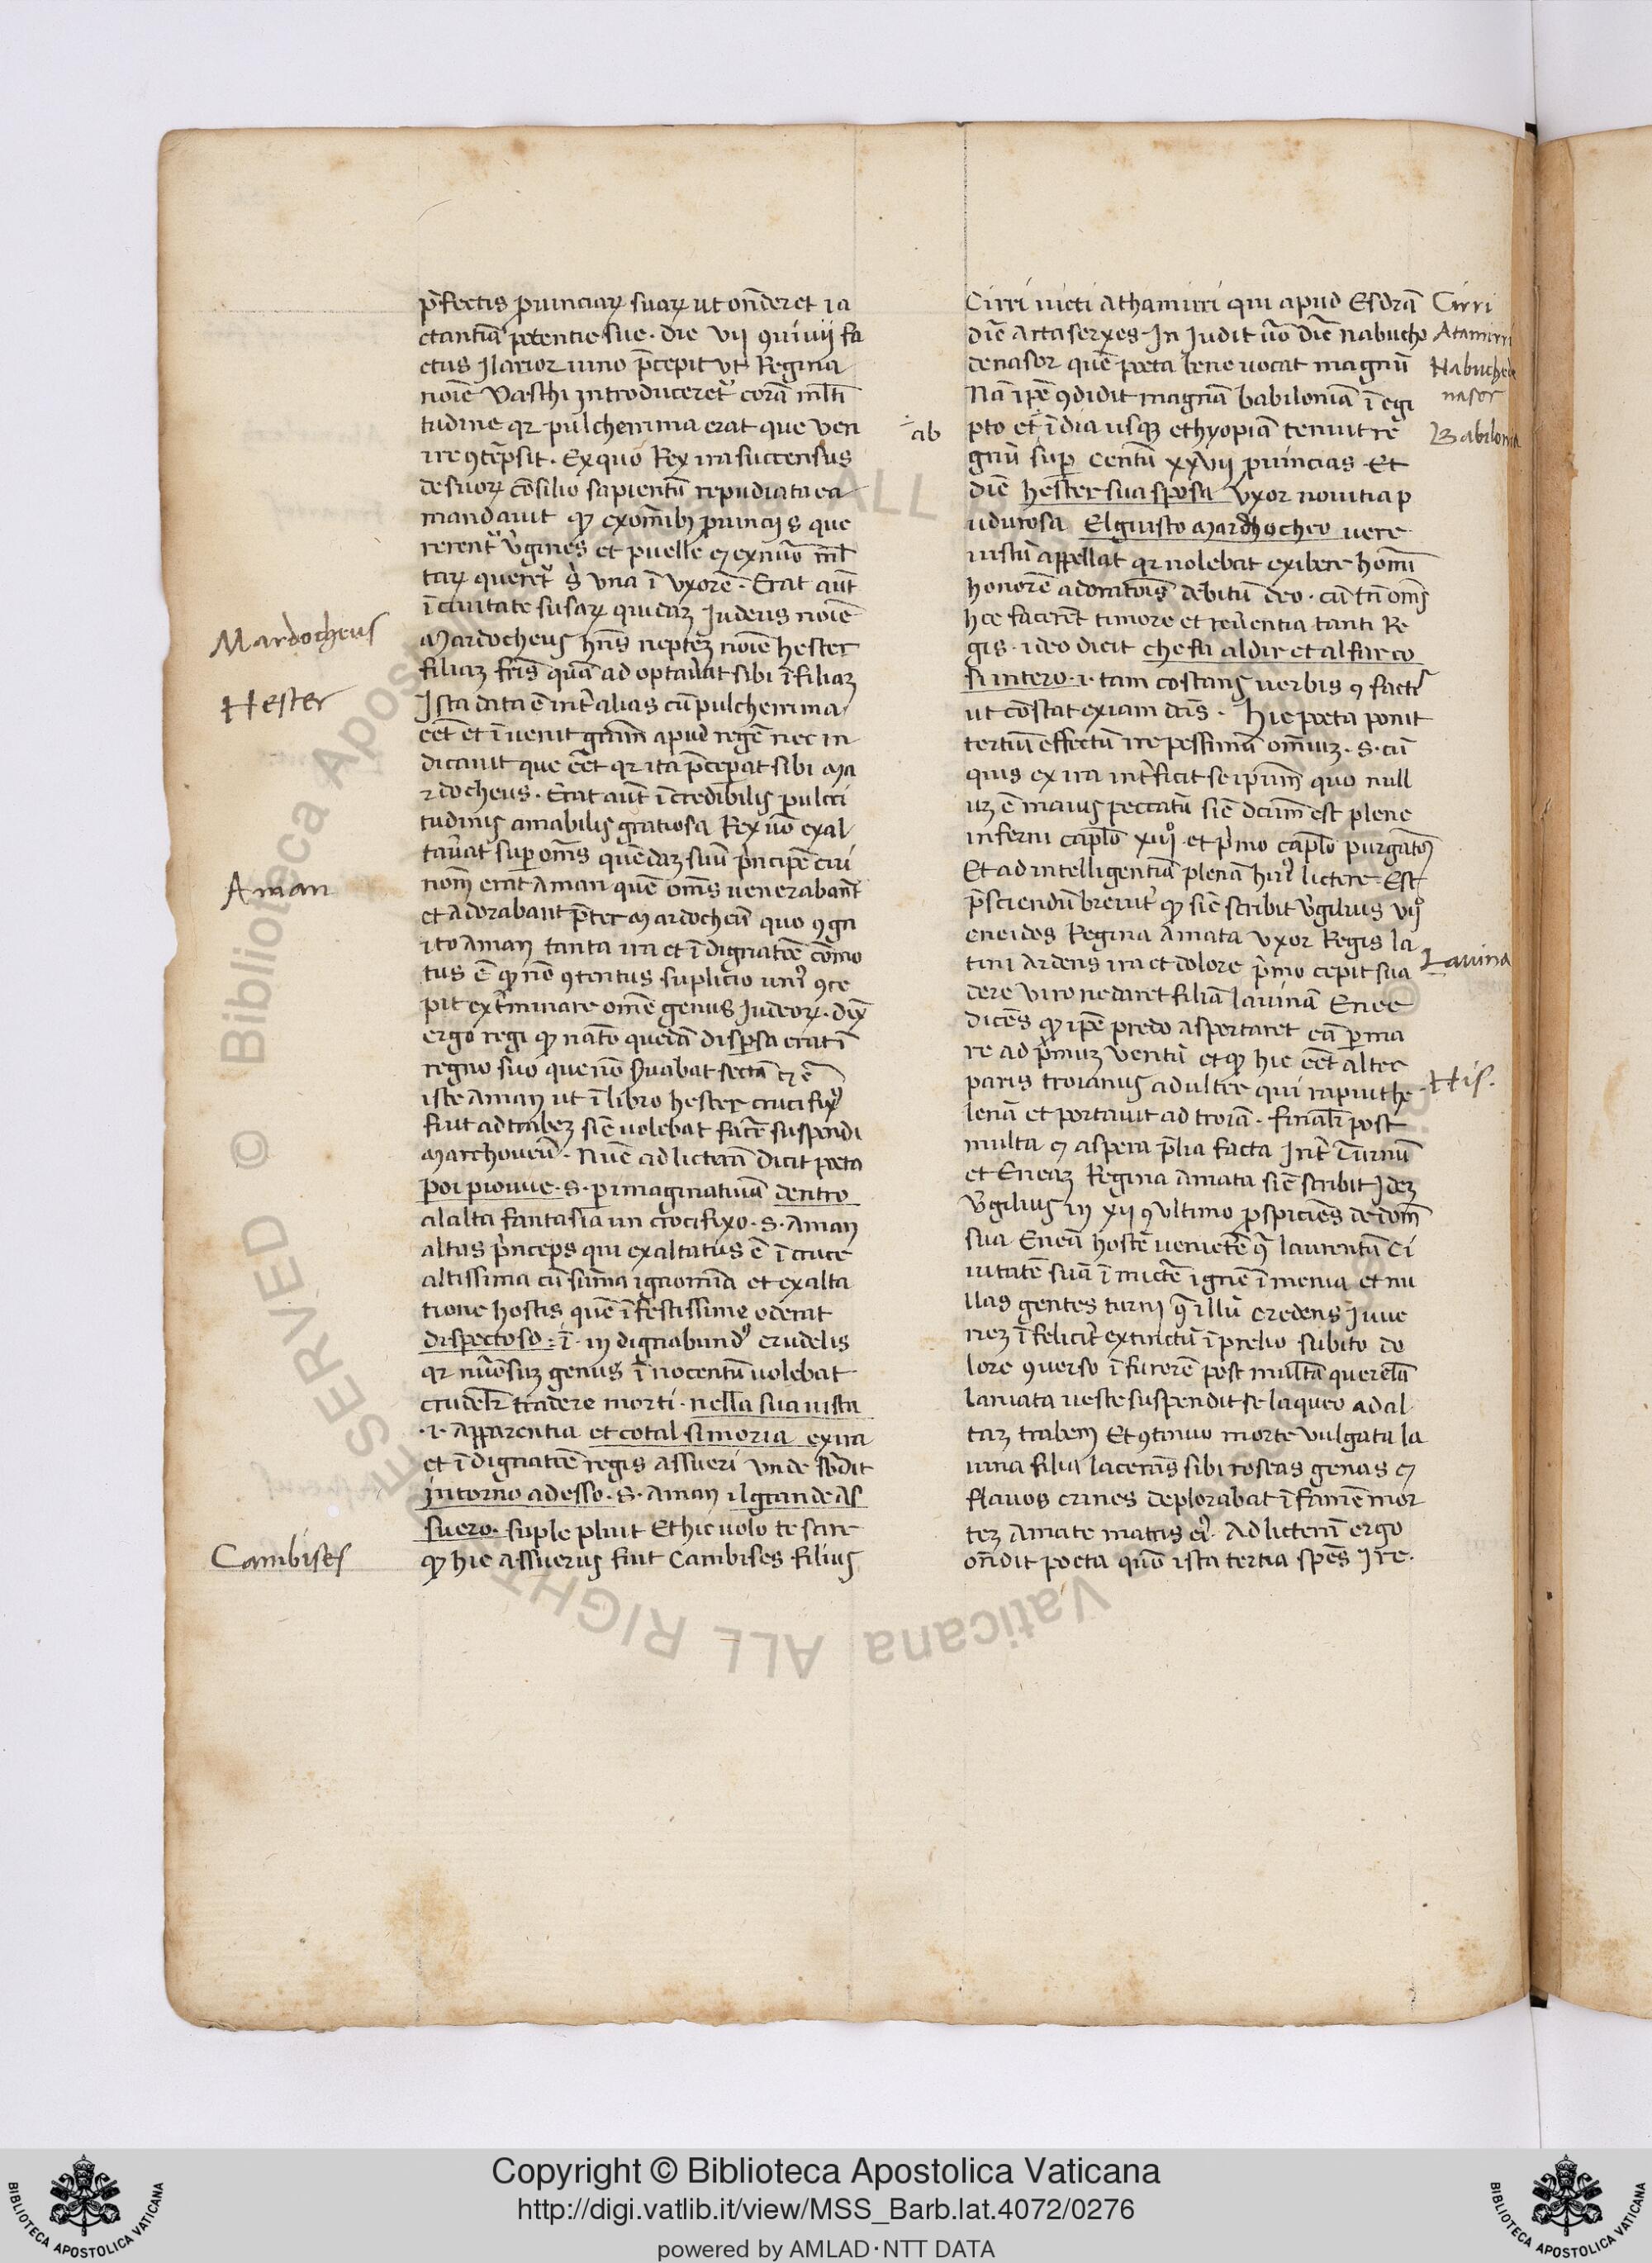 p̄fectis prouinciaꝝ suaꝝ ut on̄deret ia
ctantiā potentie sue · die vij ꝯuiuij fa
ctus Ilarior uino p̄cepit ut Regina
noīe Vasthi introduceret᷑ corā ml̄ti
tudine qꝛ pulcherrima erat que ven
ire ꝯtēpsit · Ex quo Rex ira succensus
de suoꝝ cōsilio sapientū repudiata ea
mandauit ꝙ ex om̄ibꝫ prouincijs que
rerent᷑ v̓gines et puelle ⁊ ex nūo ml̄
taꝝ queret᷑ s̓ vna ī vxorē · Erat aūt
ī ciuitate susaꝝ quidaꝫ Iudeus noīe
Mardocheus hn̄s neptēꝫ noīe hester
filiaꝫ fr̄is quā adoptau̓at sibi ī filiaꝫ
Ista data ē int̓ alias cū pulcherrima
eēt et īuenit gr̄am apud regē nec in
dicauit que eēt qꝛ ita p̄cepat sibi Ma
rdocheus · Erat aūt īcredibilis pulcri
tudinis amabilis gratiosa Rex uō exal
tau̓at super om̄s quēdaꝫ suū p̓ncipē cui
nom̄ erat Aman quē om̄s venerabant
et adorabant p̄ter Mardocheū quo ꝯgn
ito Aman tanta ira et īdignatōe cōmo
tus ē ꝙ nō ꝯtentus suplicio uni᷒ ꝯce
pit ext̓minare om̄e genus Iudeoꝝ · dix̄
ergo regi ꝙ natō quedā dispersa erat ī
regno suo que nō s̓uabat secta ⁊ ē
iste Aman ut ī libro hester crucifix᷒
fuit ad trabeꝫ sic̄ uolebat facē suspendi
Marchoueū · Nūc ad licterā dicit poeta
poi piouue · s · per imaginatiuā dentro
alalta fantasia un crocifixo · s · Aman
altus p̓nceps qui exaltatus ē ī cruce
altissima cū sūma ignomīa et exalta
tione hostis quē īfestissime oderat
dispectoso : ī · indignabund᷒ crudelis
qꝛ nūosuꝫ genus īnocentū uolebat
crudelr̄ tradere morti · nella sua uista
·i· apparentia et cotal si moria ex ira
et īdignatōe regis assueri vnde sb̄dit
intorno ad esso · s · Aman il grande As
suero · suple pluit Et hic uolo te scire
ꝙ hic assuerus fuit Cambises filius
Mardocheus
Hester
Aman
Cambises
Cirri uicti Athamirri qui apud Esdrā
dic̄ Artaserxes · In Iudit uō dic̄ nabucho
denasor quē poeta bene uocat magnū
Nā ip̄e ꝯdidit magnā babiloniā ī egi
pto et īdia usqꝫ ethyopiā tenuit re
gnū sup̄ centū xxvij prouincias · Et
dic̄ hester sua sposa vxor nouitia p
udurosa El giusto mardhocheo uere
iustū appellat qꝛ nolebat exibere homī
honorē adoratōis debitū deo · cū tn̄ om̄s
hͨe facerēt timore et reu̓entia tanti Re
gis · ideo dicit che fu al dir et al far co
si intero · i · tam costans uerbis ꝙ factis
ut cōstat ex iam dc̄is · Hic poeta ponit
tertiū effectū ire pessimū om̄iuꝫ · s · cū
quis ex ira int̓ficit se ip̄sum quo null
uꝫ ē maius peccatū sic̄ dc̄um est plene
inferni cap̄lo xiij° et p̓mo cap̄lo purgatorij
Et ad intelligentiā plenā hui᷒ lictere Est
p̄sciendū breuit̓ ꝙ sic̄ scribit v̓gilius vij°
eneides Regina Amata vxor Regis la
tini Ardens ira et dolore p̓mo cepit sua
dere viro ne daret filiā lauinā Enee
dicēs ꝙ ip̄e predo asportaret eā per ma
re ad p̓muꝫ ventū et ꝙ hic eēt alter
paris troianus adulter qui rapuit he
lenā et portauit ad troiā · finalr̄ post
multa ⁊ aspera p̄lia facta Int̓ Turnū
et Eneaꝫ Regina Amata sic̄ scribit Ideꝫ
v̓gilius in xij ꝯ vltimo prospiciēs de dom̄
sua Eneā hostē uenietē ꝯ̄ laurentū Ci
uitatē suā ī mictē ignē ī menia et nu
llas gentes turni ꝯ̄ illū credens Iuue
neꝫ īfelicit̓ extinctū ī prelio subito do
lore ꝯuerso ī furorē post multā querelā
laniata ueste suspendit se laqueo ad al
taꝫ trabem Et ꝯtinuo morte vulgata la
uina filia lacerās sibi roseas genas ⁊
flauos crines deplorabat īfamē mor
teꝫ Amate matris ei᷒ · Ad licterā ergo
on̄dit poeta quō ista tertia spēs ire ·
÷ ab
Cirri
Atamirri
Nabuchode
nasor
Babilonia
Lauina
His.
Copyright © Biblioteca Apostolica Vaticana
http://digi.vatlib.it/view/MSS_Barb.lat.4072/0276
powered by AMLAD·NTT DATA
BIBLIOTECA APOSTOLICA VATICANA
BIBLIOTECA APOSTOLICA VATICANA